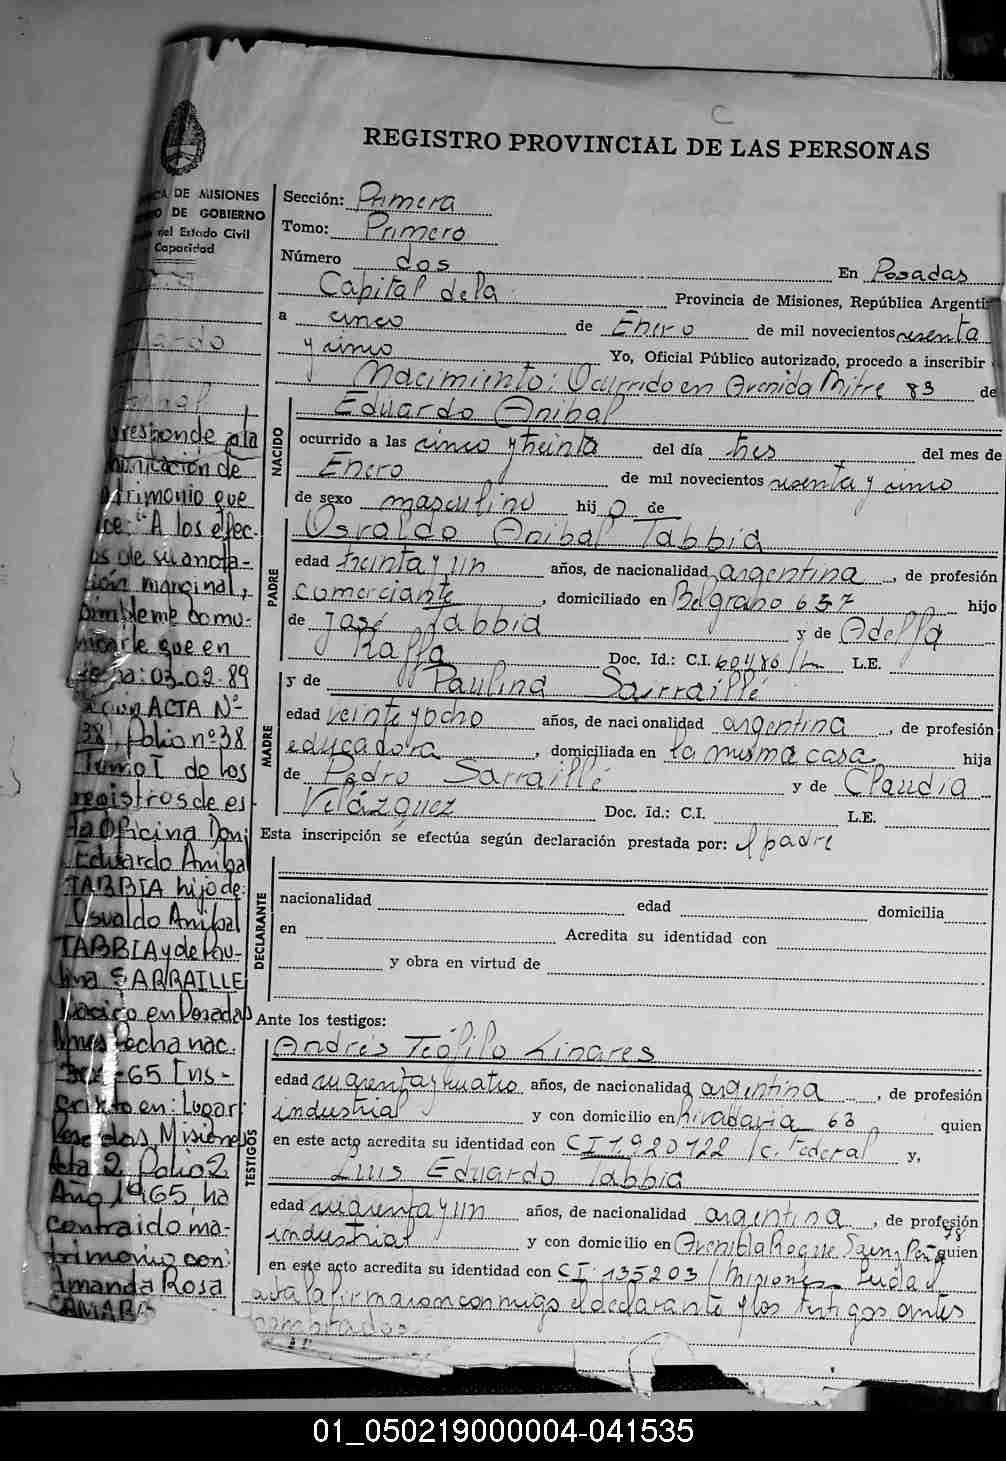 C
REGISTRO PROVINCIAL DE LAS PERSONAS
DE MISIONES
DE GOBIERNO
del Estado Civil
Capacidad
Sección: Primera
Tomo: Primero
Número dos En Posadas
Capital dela Provincia de Misiones, República Argenti
a cinco de Enero de mil novecientos sesenta
y cinco Yo, Oficial Público autorizado, procedo a inscribir
Nacimiento: Ocurrido en Avenida Mitre 83 de
Eduardo Anibal
NACIDO
ocurrido a las cinco y treinta del día tres del mes de
Enero de mil novecientos sesenta y cinco
de sexo masculino hij o de
Osvaldo Anibal Tabbia
PADRE
edad treinta y un años, de nacionalidad argentina, de profesión
comerciante, domiciliado en Belgrano 637 hijo
de José Tabbia y de Adelfa
Raffa Doc. Id.: C.I. 60486/ L.E.
y de Paulina Sarraillé
MADRE
edad veinte y ocho años, de nacionalidad argentina, de profesión
educadora, domiciliada en la misma casa hija
de Pedro Sarraillé y de Claudia
Velázquez Doc. Id.: C.I. L.E.
Esta inscripción se efectúa según declaración prestada por: el padre
DECLARANTE
nacionalidad edad domicilia
en Acredita su identidad con
y obra en virtud de
Ante los testigos:
TESTIGOS
Andrés Teófilo Linares
edad cuarenta y cuatro años, de nacionalidad argentina, de profesión
industrial y con domicilio en Rivadavia 63 quien
en este acto acredita su identidad con CI 1920122 / C. Federal y,
Luis Eduardo Tabbia
edad cuarenta y un años, de nacionalidad argentina, de profesión
industrial y con domicilio en Avenida Roque Saenz Peña 78 quien
en este acto acredita su identidad con CI 135203 / Misiones Leida el
acta la firmaron conmigo el declarante y los testigos antes
nombrados
responde a la
de
trimonio que
ce: "A los efec-
os de su anota-
ción marginal,
cumpleme comu-
nicarle que en
fecha: 03.02.89
ACTA Nº
38, folio nº 38
Tomo I de los
registros de es-
ta Oficina Don:
Eduardo Anibal
TABBIA hijo de:
Osvaldo Anibal
TABBIA y de Pau-
lina SARRAILLE
nacido en Posadas
Mnes fecha nac.
3-1-65 Ins-
cripto en: Lugar
Posadas, Misiones
Acta 2 folio 2
Año 1965, ha
contraido ma-
trimonio con:
Amanda Rosa
CAMARA
01_050219000004-041535